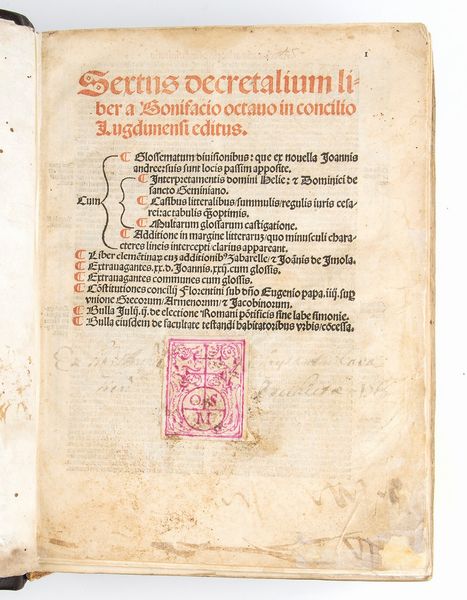 1
Sextus decretalium li-
ber a Bonifacio octauo in concilio
Lugdunensi editus.
Glossematum diuisionibus: que ex nouella Joannis
andree: suis sunt locis passim apposite.
Interpretamentis domini Helie: & Dominici de
sancto Geminiano.
Cum
Casibus litteralibus/summulis/regulis iuris cesa-
rei: ac tabulis optimis.
Multarum glossarum castigatione.
Additione in margine litterarum/quo minusculi chara-
cteres lineis intercepti/clarius appareant.
Liber clemētinarū cum additionibꝰ Zabarelle/& Joānis de Imola.
Extrauagantes .xx. d. Joannis .xxij. cum glossis.
Extrauagantes communes cum glossis.
Cōstitutiones concilij Florentini sub dño Eugenio papa .iiij. sup
vnione Grecorum/Armenorum/& Jacobinorum.
Bulla Julij .ij. de electione Romani pōtificis sine labe simonie.
Bulla eiusdem de facultate testandi habitatoribus vrbis/cōcessa.